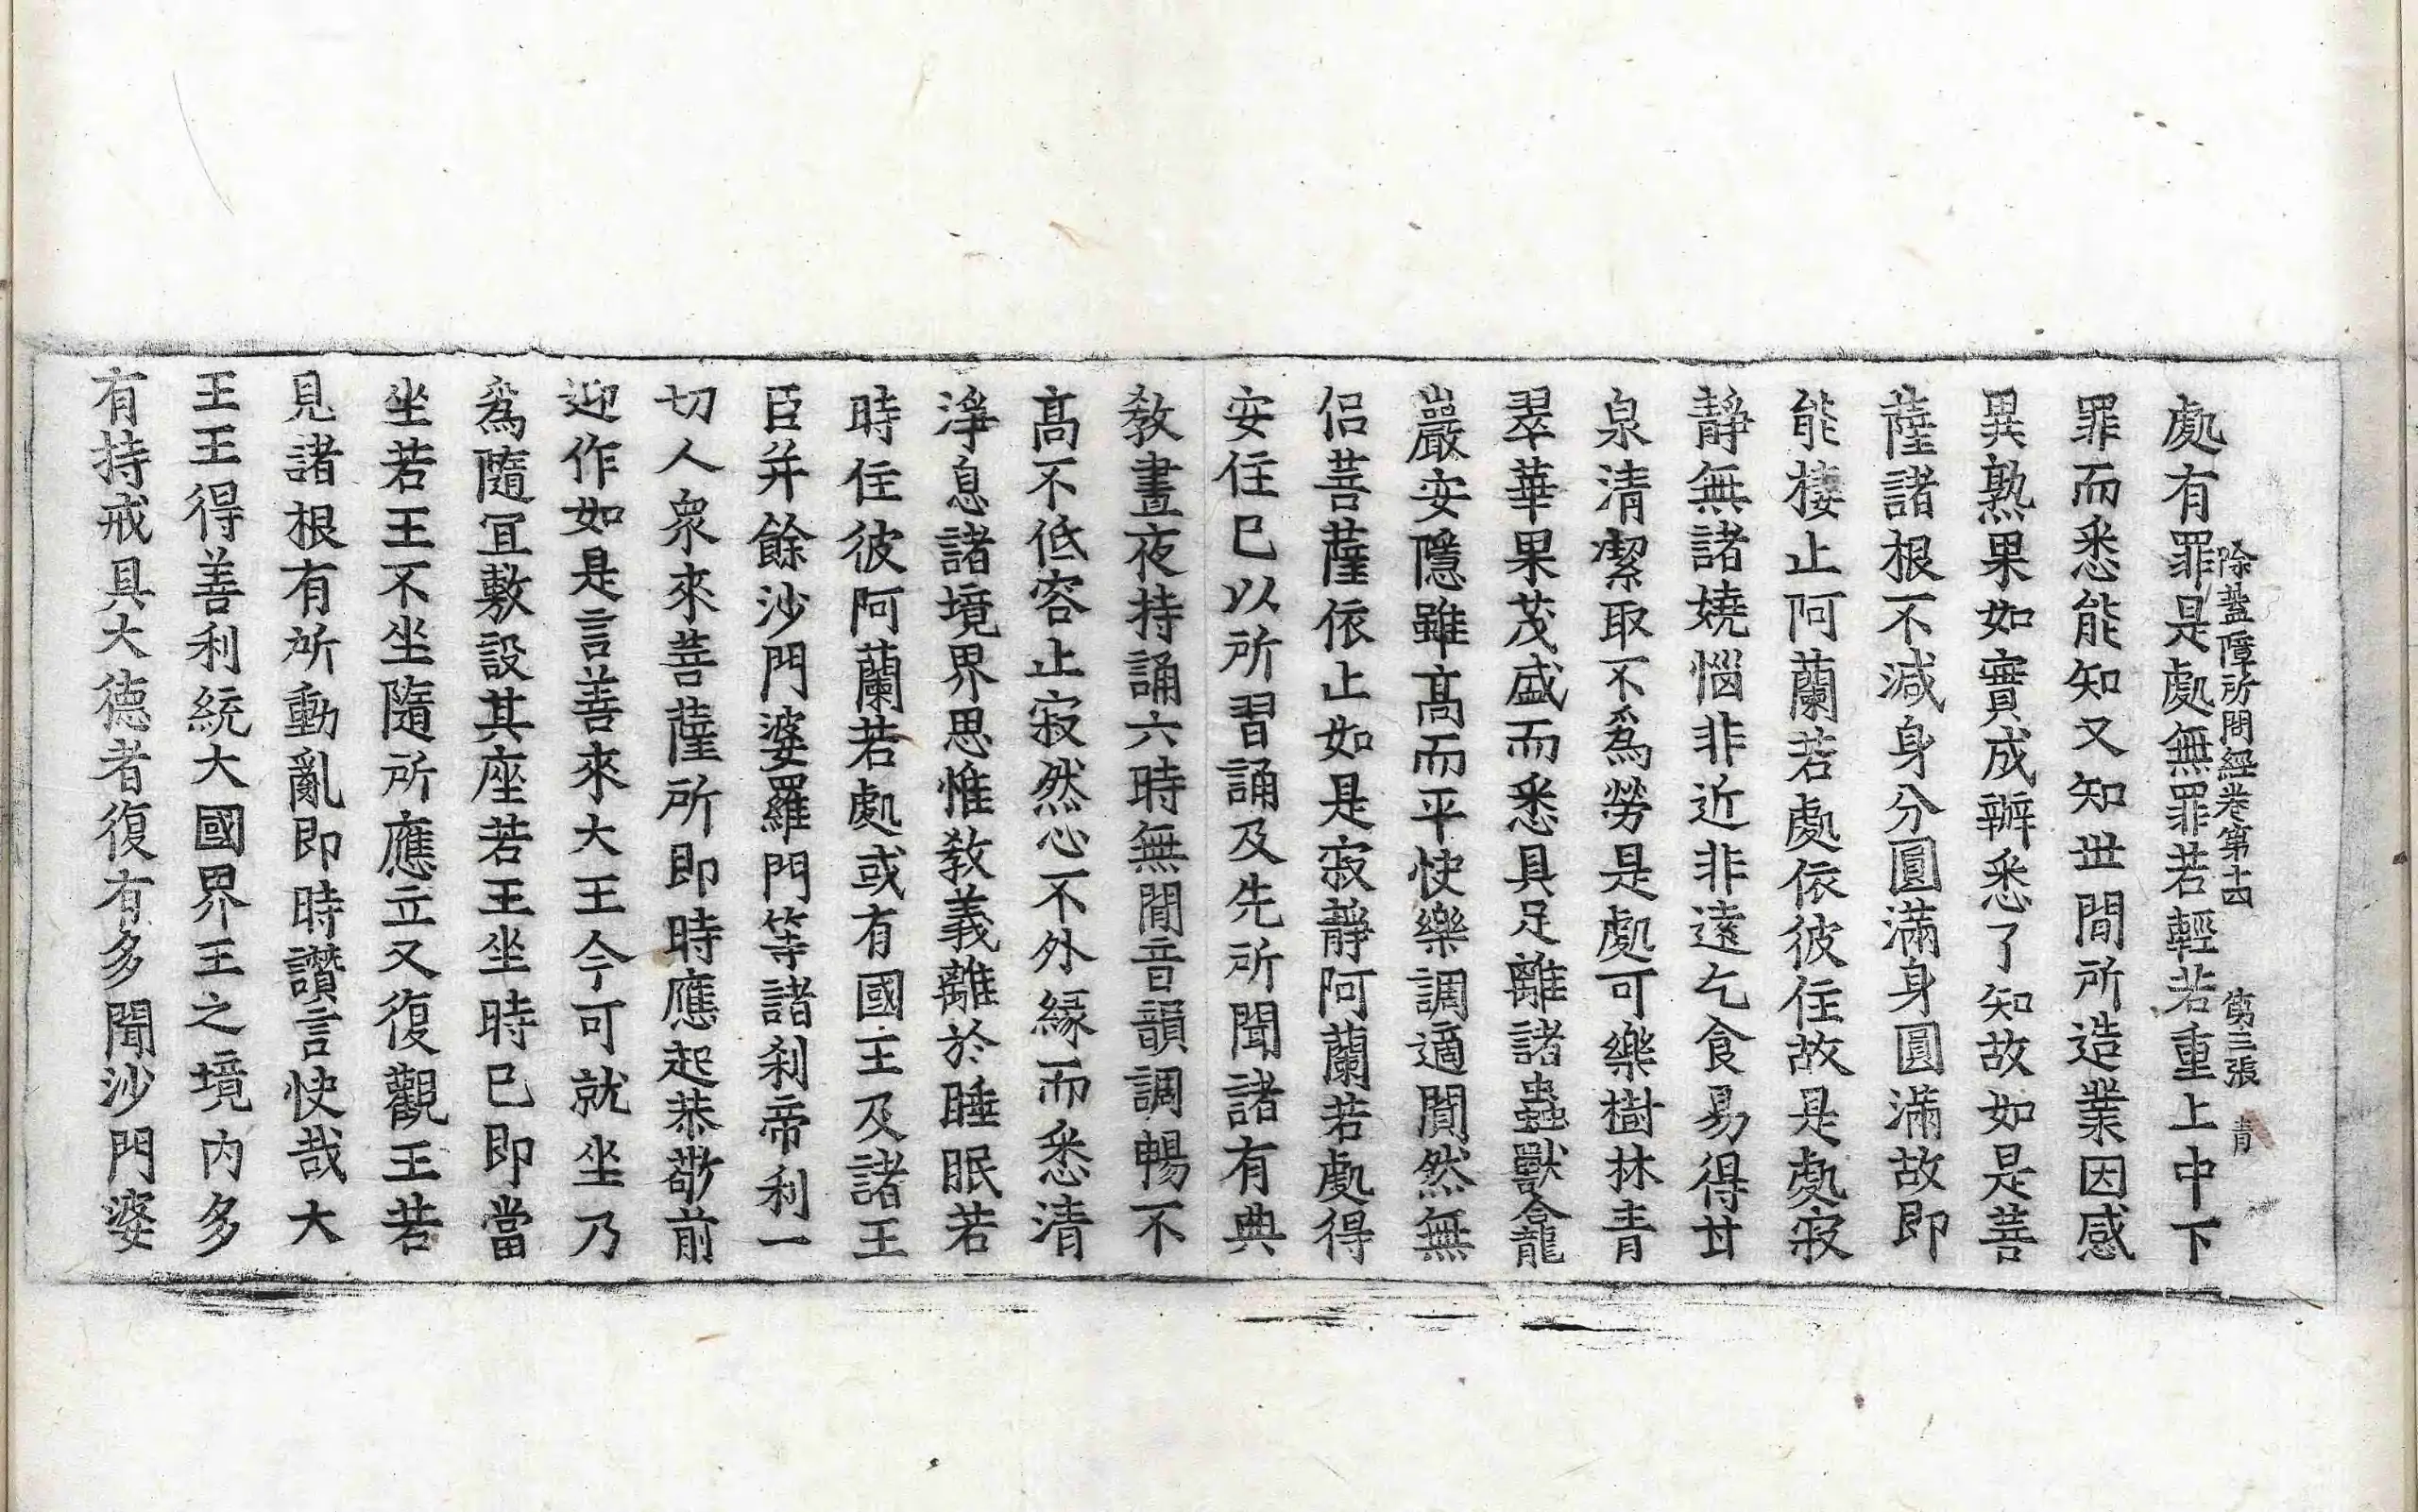 除蓋障所問經卷第十四　第三張　青
處有罪是處無罪若輕若重上中下
罪而悉能知又知世間所造業因感
異熟果如實成辦悉了知故如是菩
薩諸根不減身分圓滿身圓滿故即
能棲止阿蘭若處依彼住故是處寂
靜無諸嬈惱非近非遠乞食易得甘
泉清潔取不爲勞是處可樂樹林青
翠華果茂盛而悉具足離諸蟲獸龕
巖安隱雖高而平快樂調適閴然無
侶菩薩依止如是寂靜阿蘭若處得
安住已以所習誦及先所聞諸有典
教晝夜持誦六時無間音韻調暢不
高不低容止寂然心不外緣而悉清
淨息諸境界思惟教義離於睡眠若
時住彼阿蘭若處或有國王及諸王
臣并餘沙門婆羅門等諸刹帝利一
切人衆來菩薩所即時應起恭敬前
迎作如是言善來大王今可就坐乃
爲隨宜敷設其座若王坐時已即當
坐若王不坐隨所應立又復觀王若
見諸根有所動亂即時讚言快哉大
王王得善利統大國界王之境內多
有持戒具大德者復有多聞沙門婆